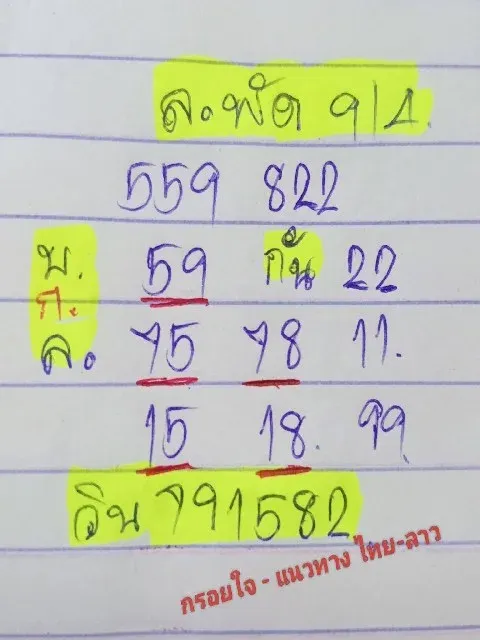 ล.พัด 9/4.
559 822
บ. 59 กัน 22
ก.
ล. 75 78 11.
15 18. 99.
วิน 791582
กรอยใจ - แนวทาง ไทย-ลาว